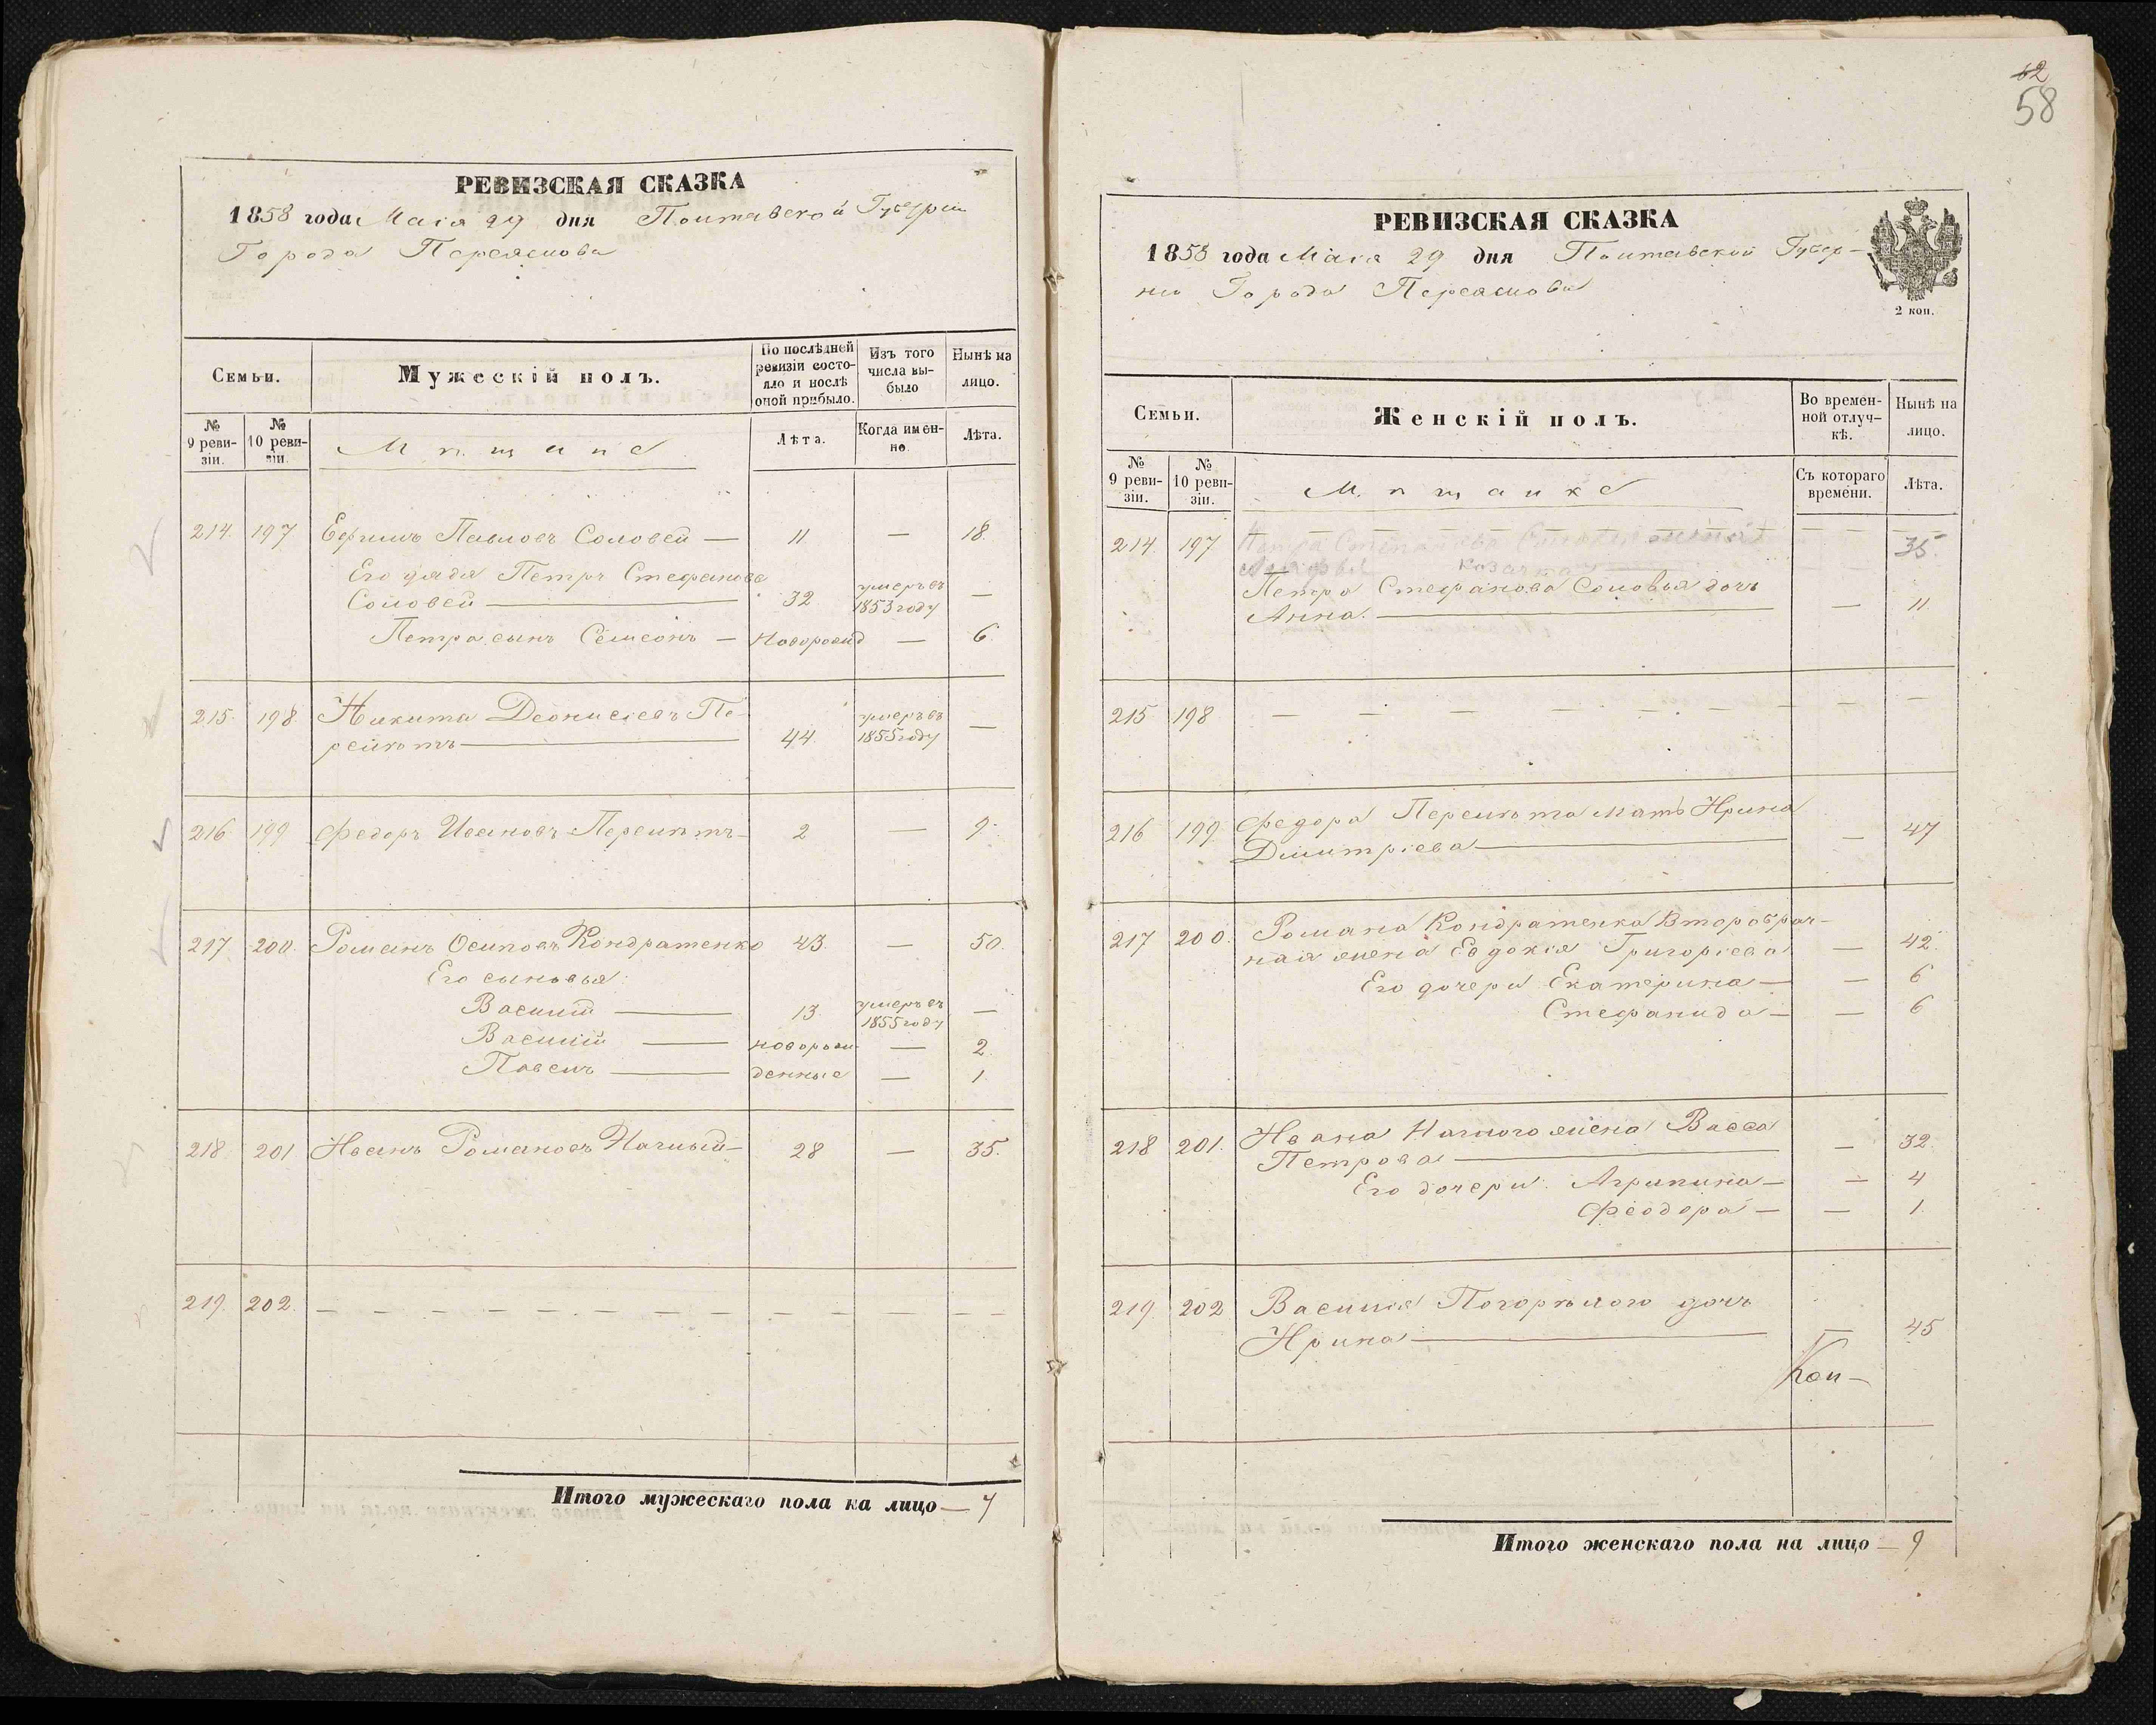 62
58
РЕВИЗСКАЯ СКАЗКА
1858 года Маія 29 дня Полтавской Губерніи
Города Переяслова
Семьи.
Мужескій полъ.
По послѣдней ревизіи состояло и послѣ оной прибыло.
Изъ того числа выбыло
Нынѣ на лицо.
№ 9 ревизіи.
№ 10 ревизіи.
Мѣщане
Лѣта.
Когда именно.
Лѣта.
214. 197 Ефимъ Павловъ Соловей — 11 — 18.
Его дядя Петръ Стефановъ
Соловей — 32 умеръ въ 1853 году —
Петра сынъ Семеонъ — новорожд — 6.
215. 198 Никита Деонисіевъ Пе-
рейнотъ — 44. умеръ въ 1855 году —
216 199 Федоръ Ивановъ — 2 — 9.
217 200. Романъ Осиповъ Кондратенко 43. — 50.
Его сыновья:
Василій — 13 умеръ въ 1855 году —
Василій — новорож- — 2.
Павелъ — денные — 1.
218. 201 Иванъ Романовъ — 28 — 35.
219. 202. — — — — — — — — — — — —
Итого мужескаго пола на лицо — 7
РЕВИЗСКАЯ СКАЗКА
1858 года Маія 29 дня Полтавской Губер-
ніи Города Переяслова
2 коп.
Семьи.
Женскій полъ.
Во временной отлучкѣ.
Нынѣ на лицо.
№ 9 ревизіи.
№ 10 ревизіи.
Мѣщанке
Съ котораго времени.
Лѣта.
214. 197 Петра 35.
Петра Стефанова Соловья дочь
Анна. — — 11
215 198 — — — — — — — — —
216 199. Федора мать Ирина
Димитріева — — 47
217 200. Романа Кондратенка Второбрач-
ная жена Евдокія Григоріева — 42.
Его дочери Екатерина — — 6
Стефанида — — 6
218 201. Ивана жена Васса
Петрова — — 32.
Его дочери: Агрипина — — 4
Феодора — — 1.
219. 202 Василія Погорѣлого дочь
Ирина — — 45
Итого женскаго пола на лицо — 9